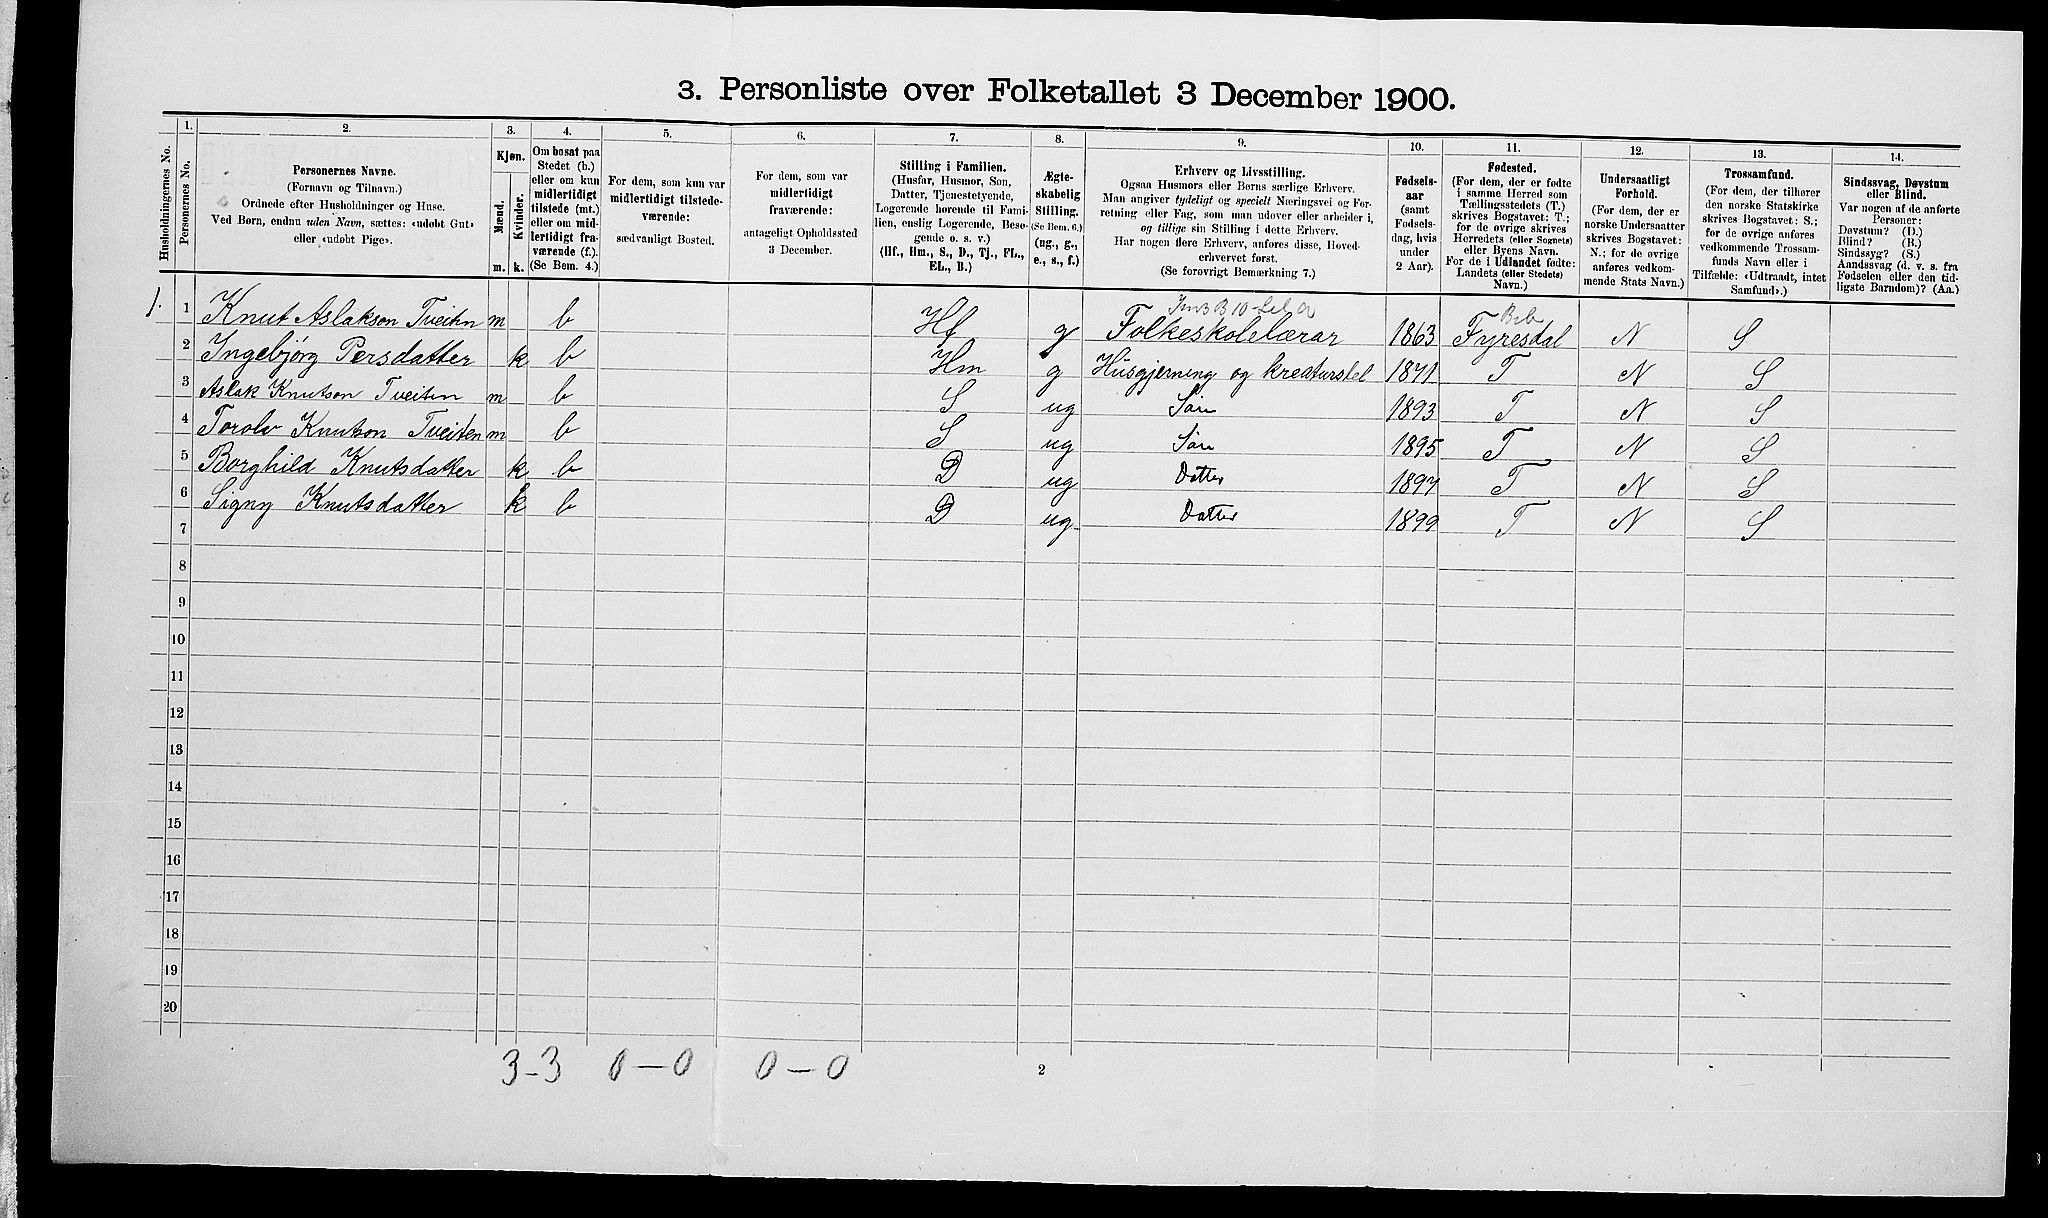 3. Personliste over Folketallet 3 December 1900.
1. 2. 3. 4. 5. 6. 7. 8. 9. 10. 11. 12. 13. 14.
Husholdningernes No.
Personernes No.
Personernes Navne.
(Fornavn og Tilnavn.)
Ordnede efter Husholdninger og Huse.
Ved Børn, endnu uden Navn, sættes: «udøbt Gut»
eller «udøbt Pige».
Kjøn.
Mænd.
Kvinder.
m. k.
Om bosat paa
Stedet (b.)
eller om kun
midlertidigt
tilstede (mt.)
eller om mid-
lertidigt fra-
værende (f.).
(Se Bem. 4.)
For dem, som kun var
midlertidigt tilstede-
værende:
sædvanligt Bosted.
For dem, som var
midlertidigt
fraværende:
antageligt Opholdssted
3 December.
Stilling i Familien.
(Husfar, Husmor, Søn,
Datter, Tjenestetyende,
Logerende hørende til Fami-
lien, enslig Logerende, Besø-
gende o. s. v.)
(Hf., Hm., S., D., Tj., FL.,
EL., B.)
Ægte-
skabelig
Stilling.
(Se Bem. 6.)
(ug., g.,
e., s., f.)
Erhverv og Livsstilling.
Ogsaa Husmors eller Børns særlige Erhverv.
Man angiver tydeligt og specielt Næringsvei og For-
retning eller Fag, som man udøver eller arbeider i,
og tillige sin Stilling i dette Erhverv.
Har nogen flere Erhverv, anføres disse, Hoved-
erhvervet først.
(Se forøvrigt Bemærkning 7.)
Fødsels-
aar
(samt
Fødsels-
dag, hvis
under
2 Aar).
Fødested.
(For dem, der er fødte
i samme Herred som
Tællingsstedets (T.)
skrives Bogstavet: T.;
for de øvrige skrives
Herredets (eller Sognets)
eller Byens Navn.
For de i Udlandet fødte:
Landets (eller Stedets)
Navn.)
Undersaatligt
Forhold.
(For dem, der er
norske Undersaatter
skrives Bogstavet:
N.; for de øvrige
anføres vedkom-
mende Stats Navn.)
Trossamfund.
(For dem, der tilhører
den norske Statskirke
skrives Bogstavet: S.;
for de øvrige anføres
vedkommende Trossam-
funds Navn eller i
Tilfælde: «Udtraadt, intet
Samfund».)
Sindssvag, Døvstum
eller Blind.
Var nogen af de anførte
Personer:
Døvstum? (D.)
Blind? (B.)
Sindssyg? (S.)
Aandssvag (d. v. s. fra
Fødselen eller den tid-
ligste Barndom)? (Aa.)
1. 1 Knut Aslakson Tveitn m b Hf g Folkeskolelærar 1863 Fyresdal N S
2 Ingebjørg Persdatter k b Hm g Husgjerning og kreaturstel 1871 T N S
3 Aslak Knutson Tveitin m b S ug Søn 1893 T N S
4 Torolv Knutson Tveiten m b S ug Søn 1895 T N S
5 Borghild Knutsdatter k b D ug Datter 1897 T N S
6 Signy Knutsdatter k b D ug Datter 1899 T N S
7
8
9
10
11
12
13
14
15
16
17
18
19
20
3-3 0-0 0-0
2